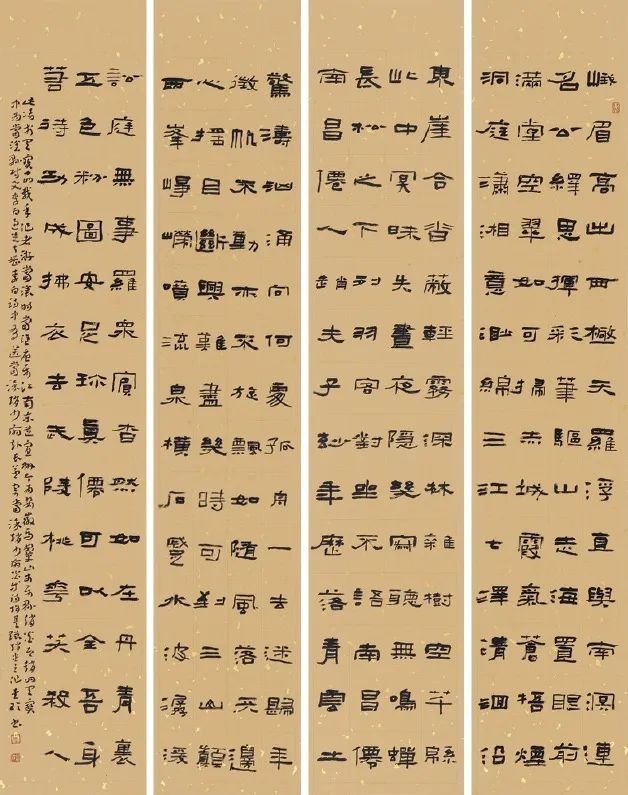 峨眉高出西極天羅浮直與南溟連
名公繹思揮彩筆驅山走海置眼前
滿堂空翠如可掃赤城霞氣蒼梧煙
洞庭瀟湘意渺綿三江七澤清洄沿
東崖合沓蔽輕霧深林雜樹空芊緜
此中冥昧失晝夜隱幾寂聽無鳴蟬
長松之下列羽客對坐不語南昌僊
南昌僊人趙夫子妙年歷落青雲士
驚濤洶涌向何處孤舟一去迷歸年
徵帆不動亦不旋飄如隨風落天邊
心搖目斷興難盡幾時可到三山巔
西峯崢嶸噴流泉橫石蹙水波潺湲
訟庭無事羅衆賓杳然如在丹青裏
五色粉圖安足珍真僊可以全吾身
若待功成拂衣去武陵桃花笑殺人